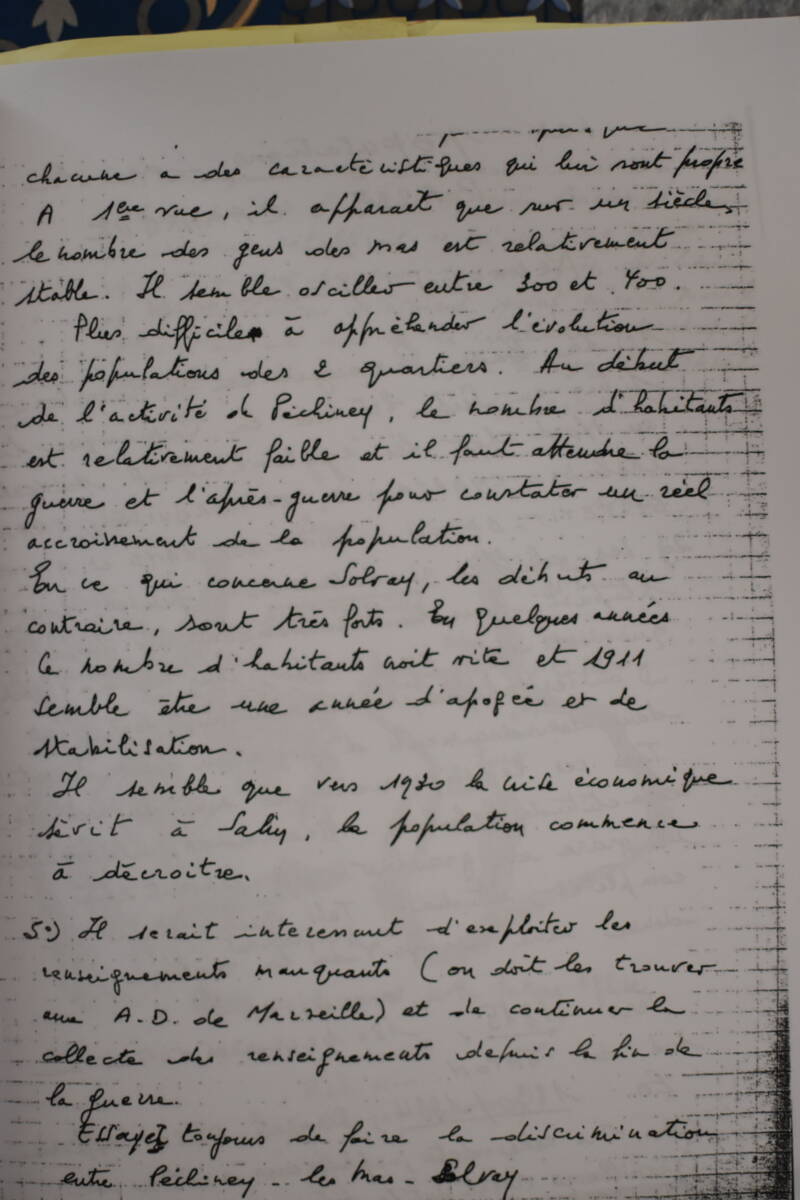 chacune a des caractéristiques qui lui sont propre
A 1ère vue, il apparaet que sur un siècle,
le nombre des gens des mas est relativement
stable. Il semble osciller entre 300 et 400.
Plus difficile à appréhender l'évolution
des populations des 2 quartiers. Au début
de l'activité de Péchiney, le nombre d'habitants
est relativement faible et il faut attendre la
guerre et l'après-guerre pour constater un réel
accroissement de la population.
En ce qui concerne Solvay, les débuts au
contraire, sont très forts. En quelques années
le nombre d'habitants croit vite et 1911
semble être une année d'apogée et de
stabilisation.
Il semble que vers 1930 la crise économique
sévit à Salin, la population commence
à décroitre.
5°) Il serait interessant d'exploiter les
renseignements manquants (on doit les trouver
aux A.D. de Marseille) et de continuer la
collecte des renseignements depuis la fin de
la guerre.
Essayez toujours de faire la discrimination
entre Péchiney - les mas - Solvay